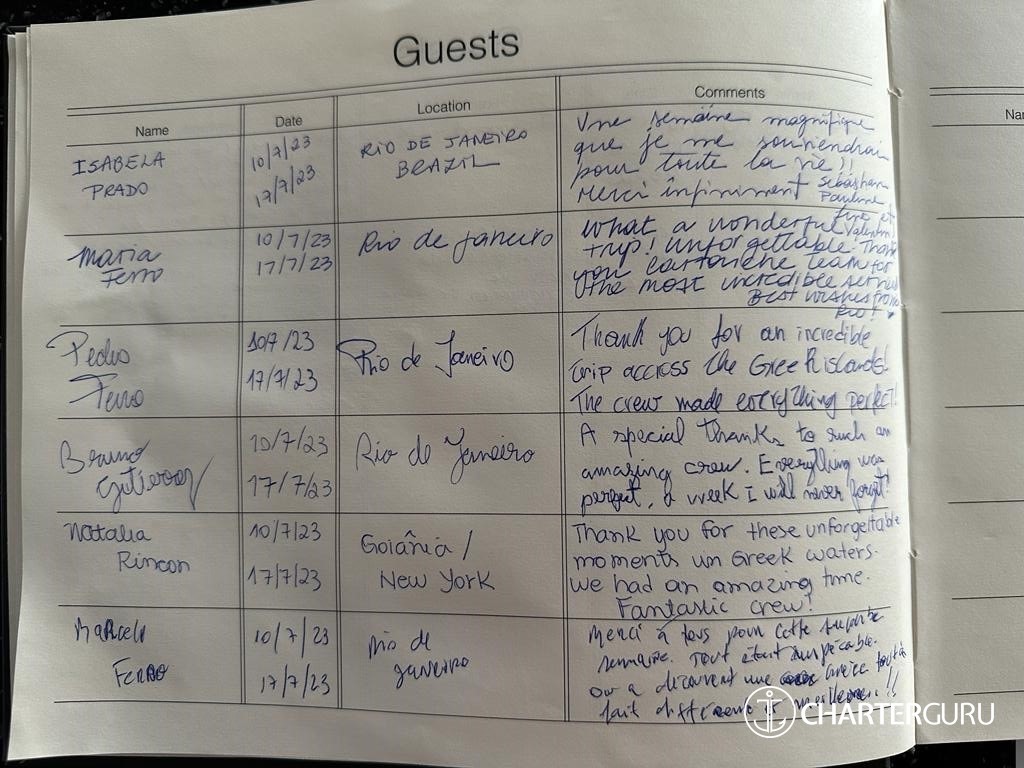 Guests
Name
Date
Location
Comments
Na
ISABELA
PRADO
10/7/23
17/7/23
RIO DE JANEIRO
BRAZIL
Une semaine magnifique
que je me souviendrai
pour toute la vie!!
Merci infiniment Sebastian
Pauline
et
Valentin
Maria
Ferro
10/7/23
17/7/23
Rio de Janeiro
What a wonderful
trip! Unforgettable. Thank
you cartouche team for
the most incredible service
Best wishes from
Rio!
Pedro
Ferro
10/7/23
17/7/23
Rio de Janeiro
Thank you for an incredible
trip accross the Greek islands!
The crew made everything perfect!
Bruno
10/7/23
17/7/23
Rio de Janeiro
A special thanks to such an
amazing crew. Everything was
perfect, a week I will never forget!
Natalia
Rincon
10/7/23
17/7/23
Goiânia /
New York
Thank you for these unforgettable
moments un Greek waters.
We had an amazing time.
Fantastic crew!
Marcelo
Ferro
10/7/23
17/7/23
Rio de
Janeiro
Merci à tous pour cette superbe
semaine. Tout était impécable.
On a découvert une Grèce tout à
fait différente !!
CHARTERGURU